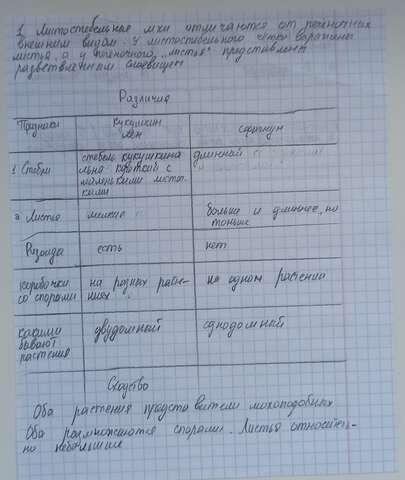 1. Листостебельные мхи отличаются от печеночных
внешним видом. У листостебельного четко выражены
листья, а у печеночного „листья" представлены
разветвленным слоевищем
Различия
Признаки Кукушкин лен сфагнум
1 Стебли стебель кукушкина длинный
льна короткий с
маленькими листо-
ками
2 Листья мелкие больше и длиннее, но
тоньше
Ризоида есть нет
коробочки на разных расте- на одном растении
со спорами ниях
какими двудомный однодомный
бывают
растения
Сходства
Оба растения представители мохоподобных
Оба размножаются спорами. Листья относитель-
но небольшие